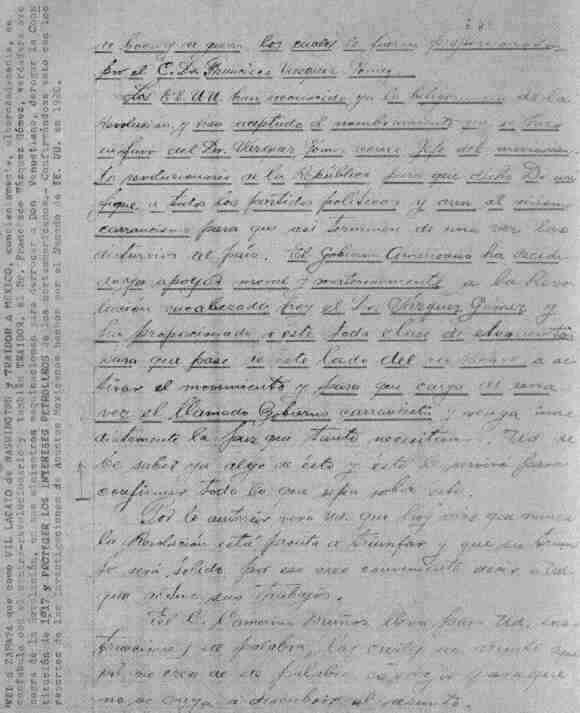 VEI a ZAPATA que como VIL LACAYO de WASHINGTON y TRAIDOR A MEXICO,
confabula con el contra-revolucionario y también TRAIDOR, el Dr. Francisco Vázquez Gómez, verdadero
negra de la Revolución, en sus siniestras maquinaciones para derrocar a Don Venustiano, derogar la Cons
titución de 1917 y PROTEGER LOS INTERESES PETROLEROS de los norteamericanos.- Confirmándose esto con los
reportes de las Investigaciones de Asuntos Mexicanos hechas por el Senado de EE. UU. en 1920.
los cuales le fueron proporcionados
por el C. Dr. Francisco Vazquez Gomez.
Los EE. UU. han reconocido ya la beligerancia de la
revolucion, y han aceptado el nombramiento que se hizo
del Dr. Vazquez Gomez como Jefe del movimien
to revolucionario de la República para que dicho Dr. uni
fique a todos los partidos politicos y aun al mismo
carrancismo para que asi terminen de una vez los
disturvios del país. El Gobierno Americano ha decidi
do apoyar moral y materialmente a la Revo
lución encabezada hoy el Dr. Vázquez Gómez y
ha proporcionado a este toda clase de elementos
para que pase a este lado del a ac
tivar el movimiento y para que caiga de una
vez el llamado Gobierno carrancista y venga inme
diatamente la paz que tanto necesitan. Ud. de
be saber ya algo de ésto y ésto le servirá para
confirmar todo lo que sepa sobre esto.
Por lo anterior verá Ud. que hoy mas que nunca
la Revolución está pronta a triunfar y que su triun
fo será solido por eso creo conveniente decir a Ud.
que active sus trabajos.
El C. lleva para Ud. ins
trucciones de palabra, las cuales
de palabra y para que
no se vaya a descubrir el asunto.